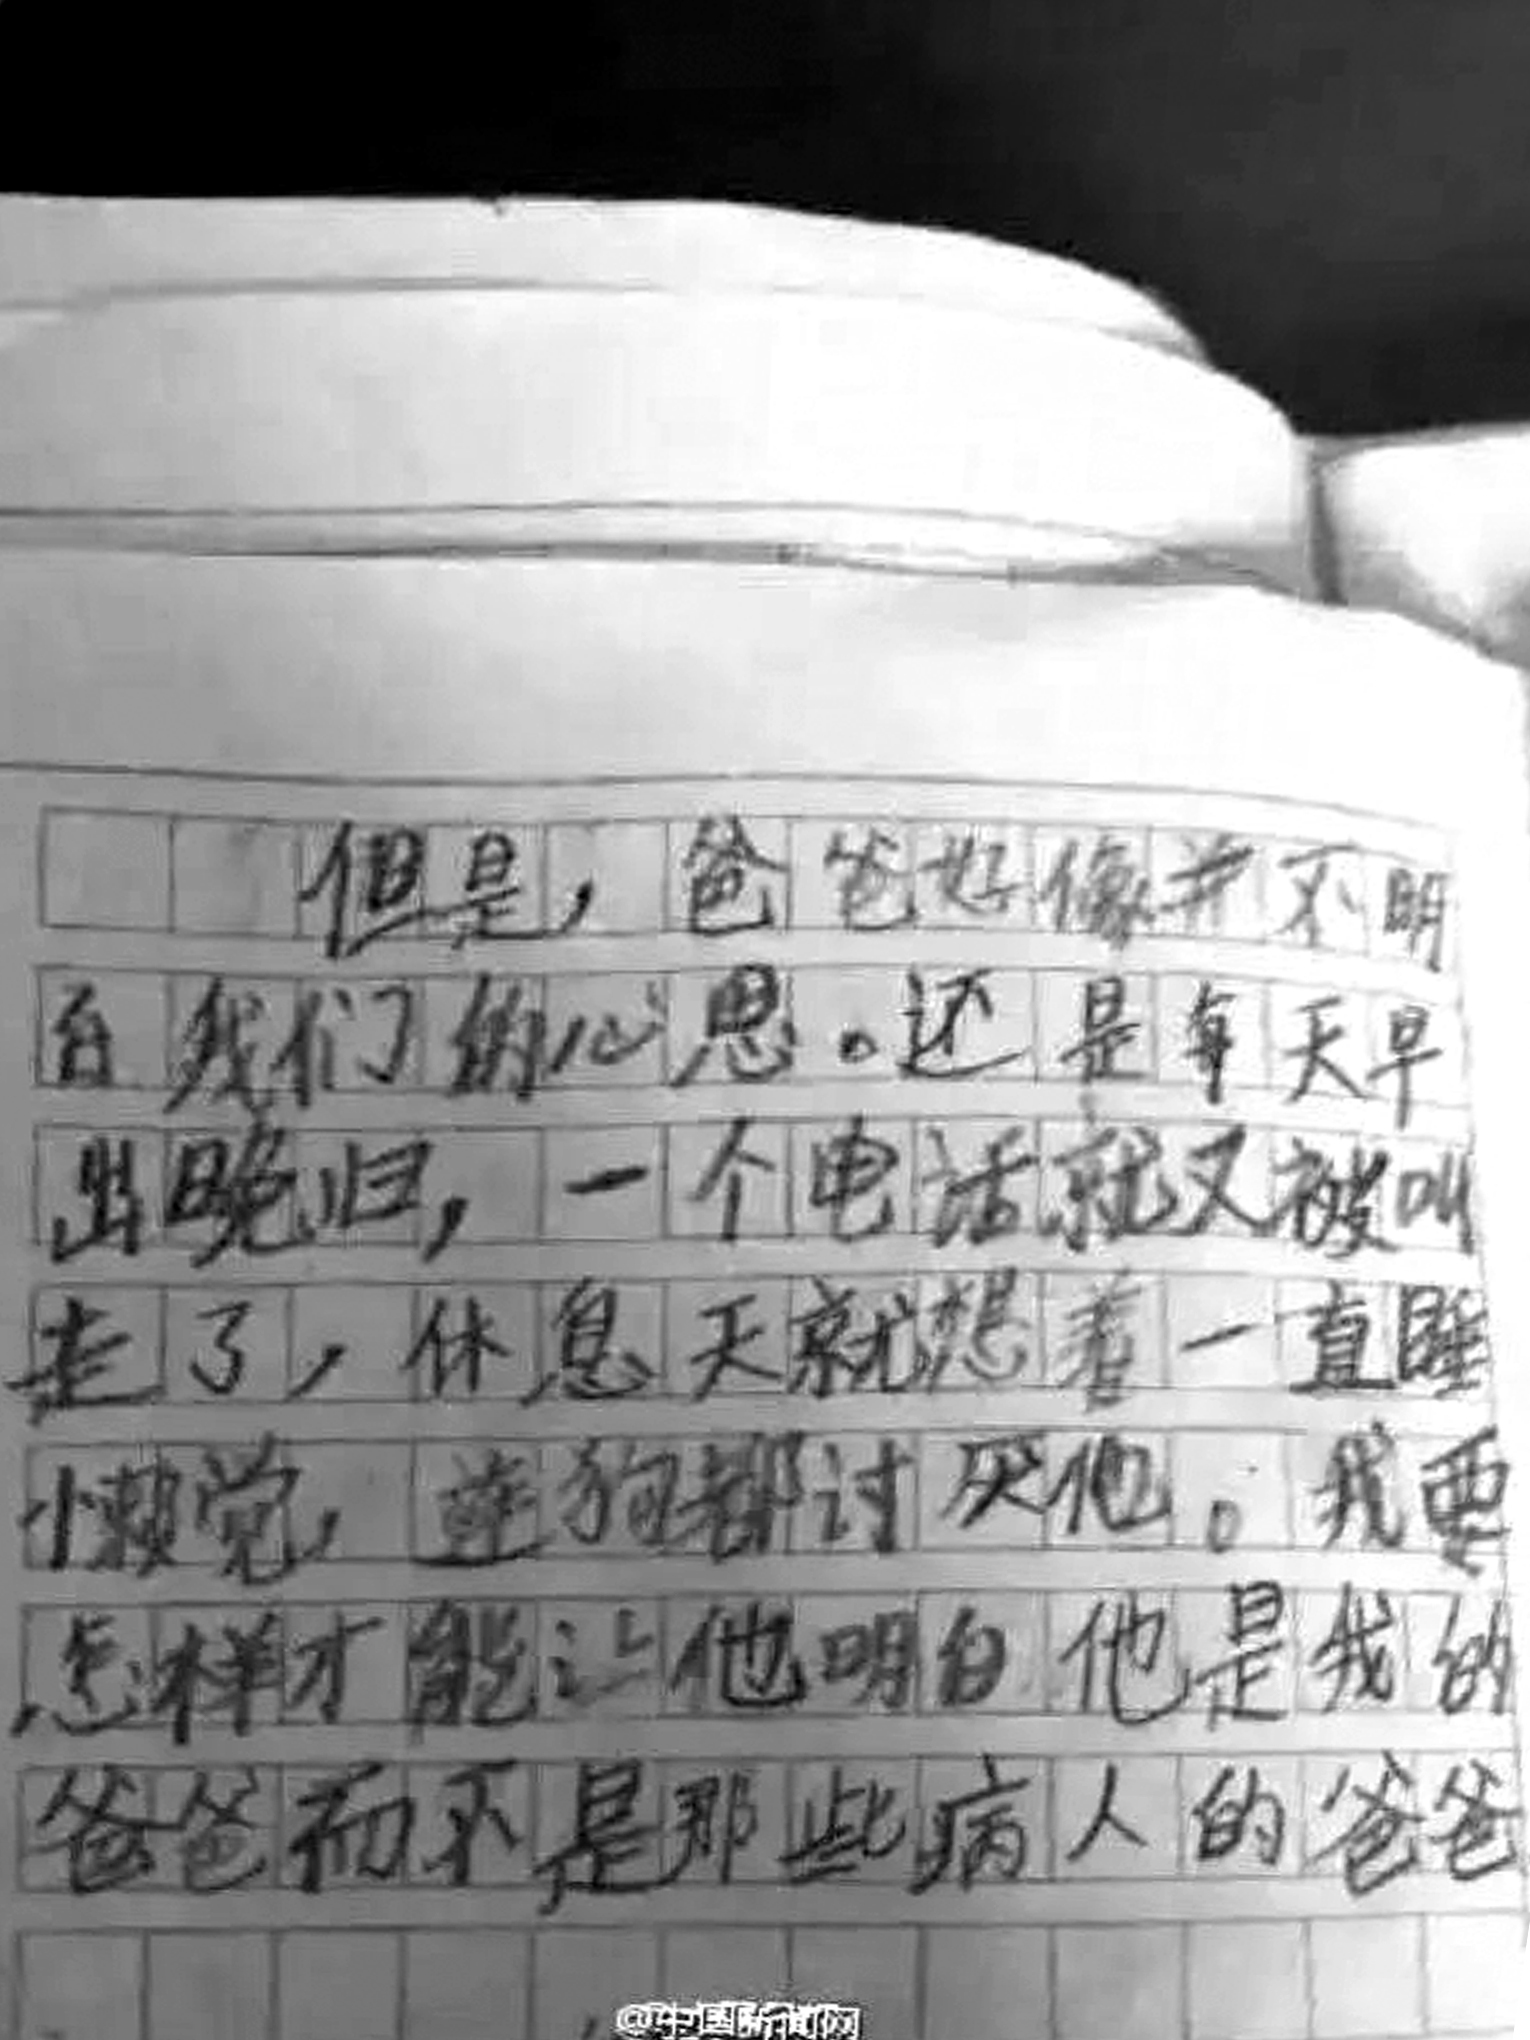 但是，爸爸好像并不明
白我们的心思。还是每天早
出晚归，一个电话就又被叫
走了，休息天就想着一直睡
懒觉，连狗都讨厌他。我要
怎样才能让他明白他是我的
爸爸而不是那些病人的爸爸
@中国新闻网